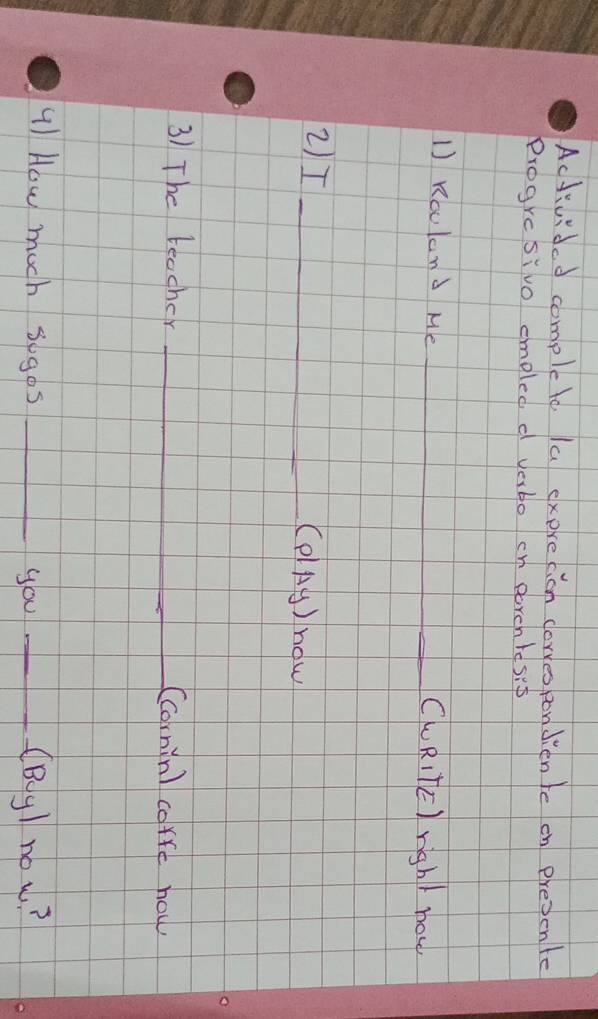 Actividad completa la expreción correspondiente en presente
Progresivo emplea el verbo en parentesis
1) Kaland Me ________ (WRITE) right now
2) I ________ (plAy) now
3) The teacher ________ (cornin) coffe now
4) How much sugas ____ you ____ (Buy) now?